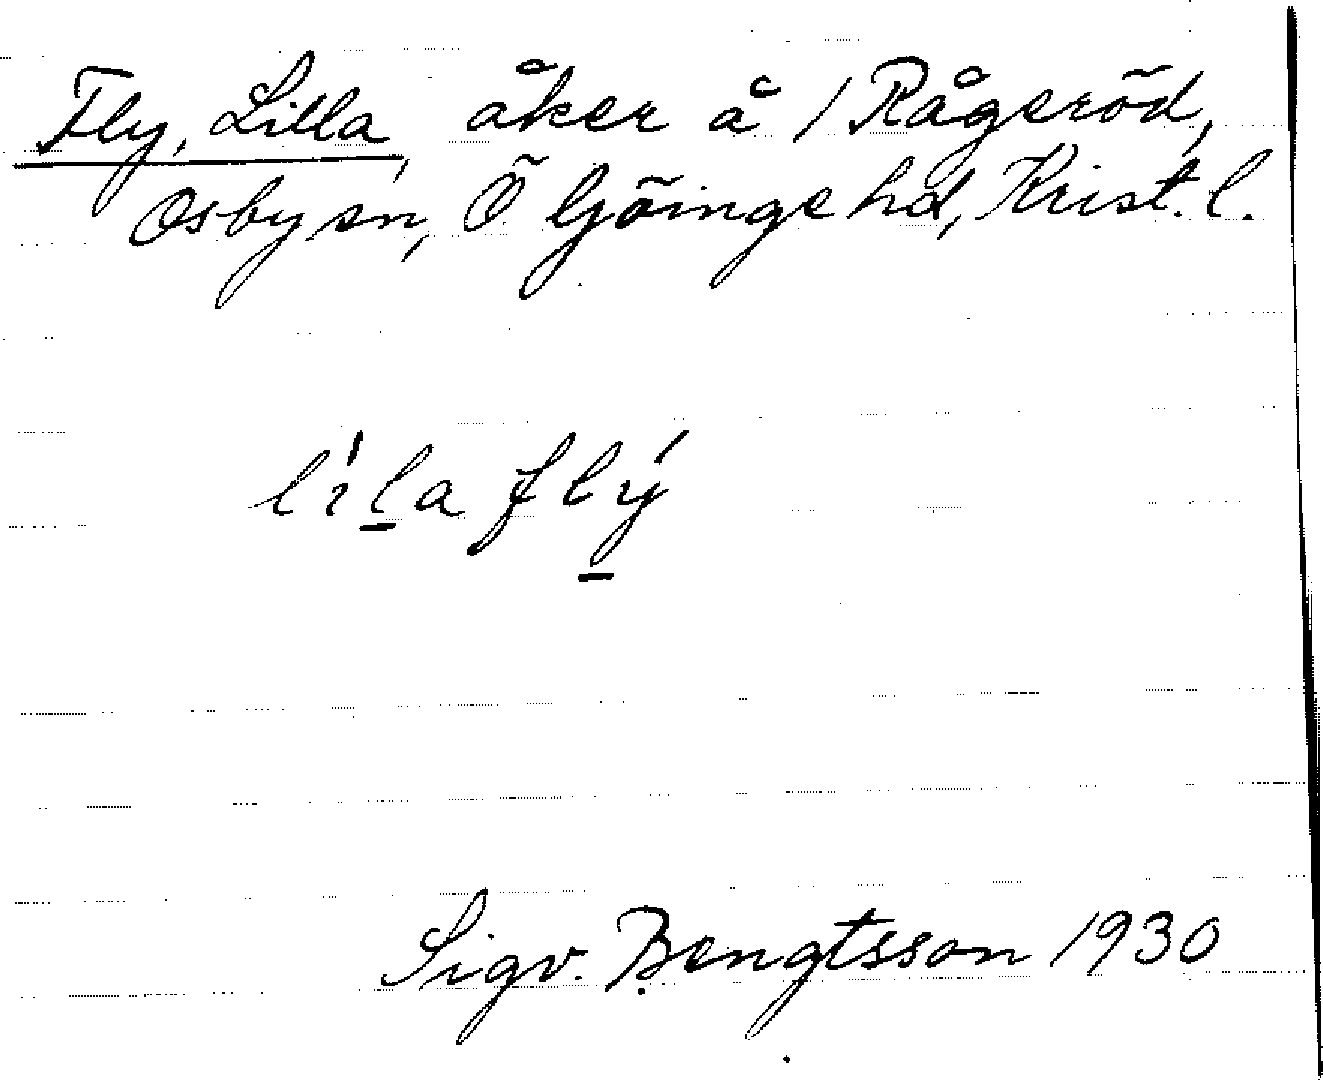 Fly, Lilla, åker å 1 Rågeröd,
Osby sn, Ö Göinge hd, Krist. l.
lìla flý
Sigv. Bengtsson 1930